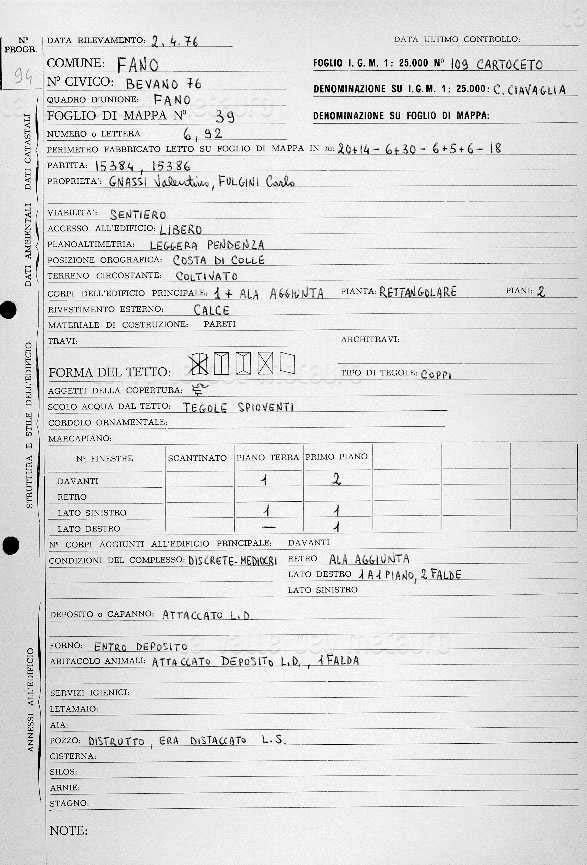 Nº PROGR. DATA RILEVAMENTO: 2.4.76 DATA ULTIMO CONTROLLO:
94 COMUNE: FANO FOGLIO I.G.M. 1: 25.000 Nº 109 CARTOCETO
Nº CIVICO: BEVANO 76 DENOMINAZIONE SU I.G.M. 1: 25.000: C. CIAVAGLIA
QUADRO D'UNIONE: FANO
FOGLIO DI MAPPA Nº 39 DENOMINAZIONE SU FOGLIO DI MAPPA:
NUMERO o LETTERA 6, 92
PERIMETRO FABBRICATO LETTO SU FOGLIO DI MAPPA IN m: 20+14-6+30-6+5+6-18
PARTITA: 15384, 15386
PROPRIETA': GNASSI Valentino, FULGINI Carlo
DATI AMBIENTALI DATI CATASTALI
VIABILITA': SENTIERO
ACCESSO ALL'EDIFICIO: LIBERO
PLANOALTIMETRIA: LEGGERA PENDENZA
POSIZIONE OROGRAFICA: COSTA DI COLLE
TERRENO CIRCOSTANTE: COLTIVATO
CORPI DELL'EDIFICIO PRINCIPALE: 1 + ALA AGGIUNTA PIANTA: RETTANGOLARE PIANI: 2
RIVESTIMENTO ESTERNO: CALCE
MATERIALE DI COSTRUZIONE: PARETI
TRAVI: ARCHITRAVI:
FORMA DEL TETTO: TIPO DI TEGOLE: COPPI
AGGETTI DELLA COPERTURA:
SCOLO ACQUA DAL TETTO: TEGOLE SPIOVENTI
CORDOLO ORNAMENTALE:
MARCAPIANO:
STRUTTURA E STILE DELL'EDIFICIO
Nº FINESTRE SCANTINATO PIANO TERRA PRIMO PIANO
DAVANTI 1 2
RETRO
LATO SINISTRO 1 1
LATO DESTRO — 1
Nº CORPI AGGIUNTI ALL'EDIFICIO PRINCIPALE: DAVANTI
CONDIZIONI DEL COMPLESSO: DISCRETE-MEDIOCRI RETRO ALA AGGIUNTA
LATO DESTRO 1 A 1 PIANO, 2 FALDE
LATO SINISTRO
DEPOSITO o CAPANNO: ATTACCATO L.D.
FORNO: ENTRO DEPOSITO
ABITACOLO ANIMALI: ATTACCATO DEPOSITO L.D., 1 FALDA
ANNESSI ALL'EDIFICIO
SERVIZI IGIENICI:
LETAMAIO:
AIA:
POZZO: DISTRUTTO, ERA DISTACCATO L.S.
CISTERNA:
SILOS:
ARNIE:
STAGNO:
NOTE: